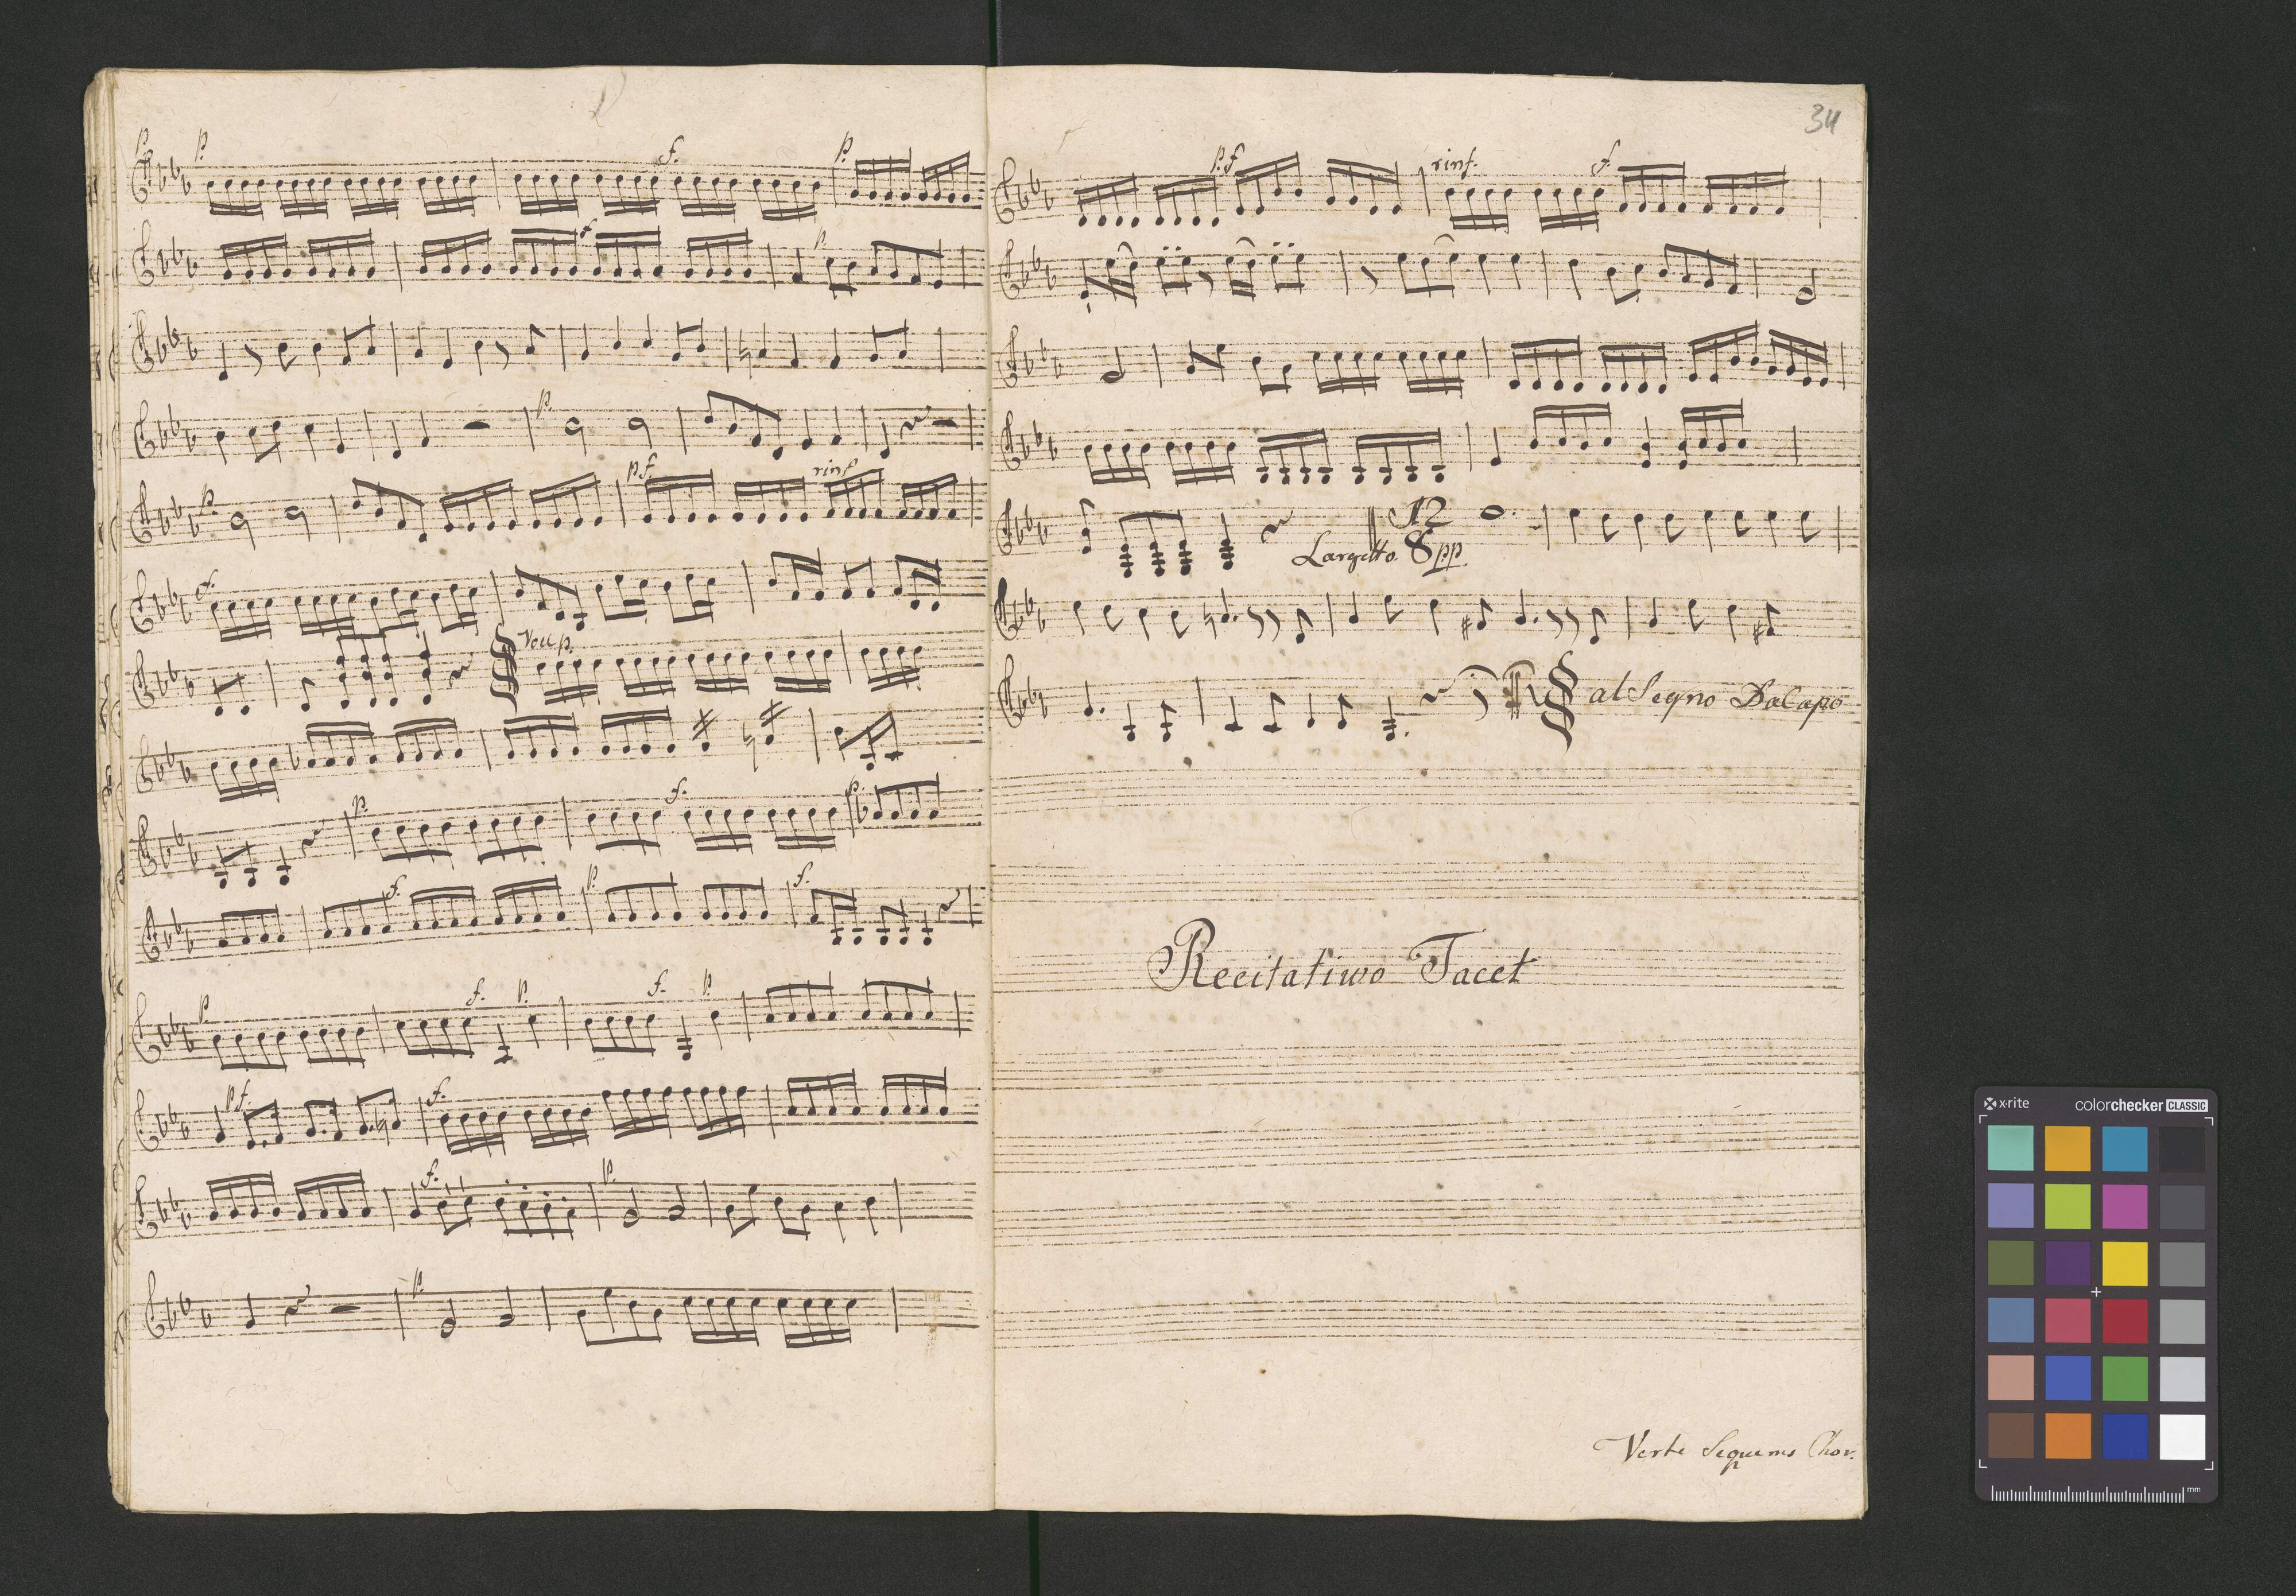 p. p. f. p.
f p.
p.
p. p.f. rinf
f.
Vou p.
p. f. p.
f. p. f.
p. f. p. f. p.
p.f. f.
f. p.
p.
34
p.f rinf. f.
12
8
Largetto. pp.
al Segno DaCapo
Recitatiwo Tacet
Verte Sequens Chor.
x-rite colorchecker CLASSIC
mm